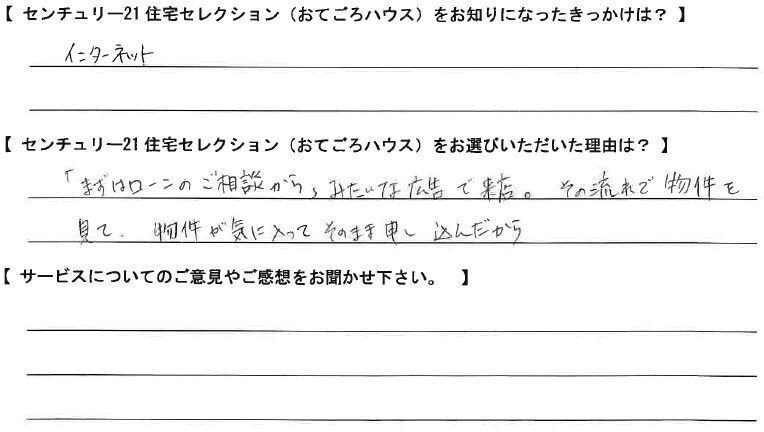 【 センチュリー21 住宅セレクション（おてごろハウス）をお知りになったきっかけは？ 】
インターネット
【 センチュリー21 住宅セレクション（おてごろハウス）をお選びいただいた理由は？ 】
「まずはローンのご相談から」みたいな広告で来店。その流れで物件を
見て、物件が気に入ってそのまま申し込んだから
【 サービスについてのご意見やご感想をお聞かせ下さい。 】